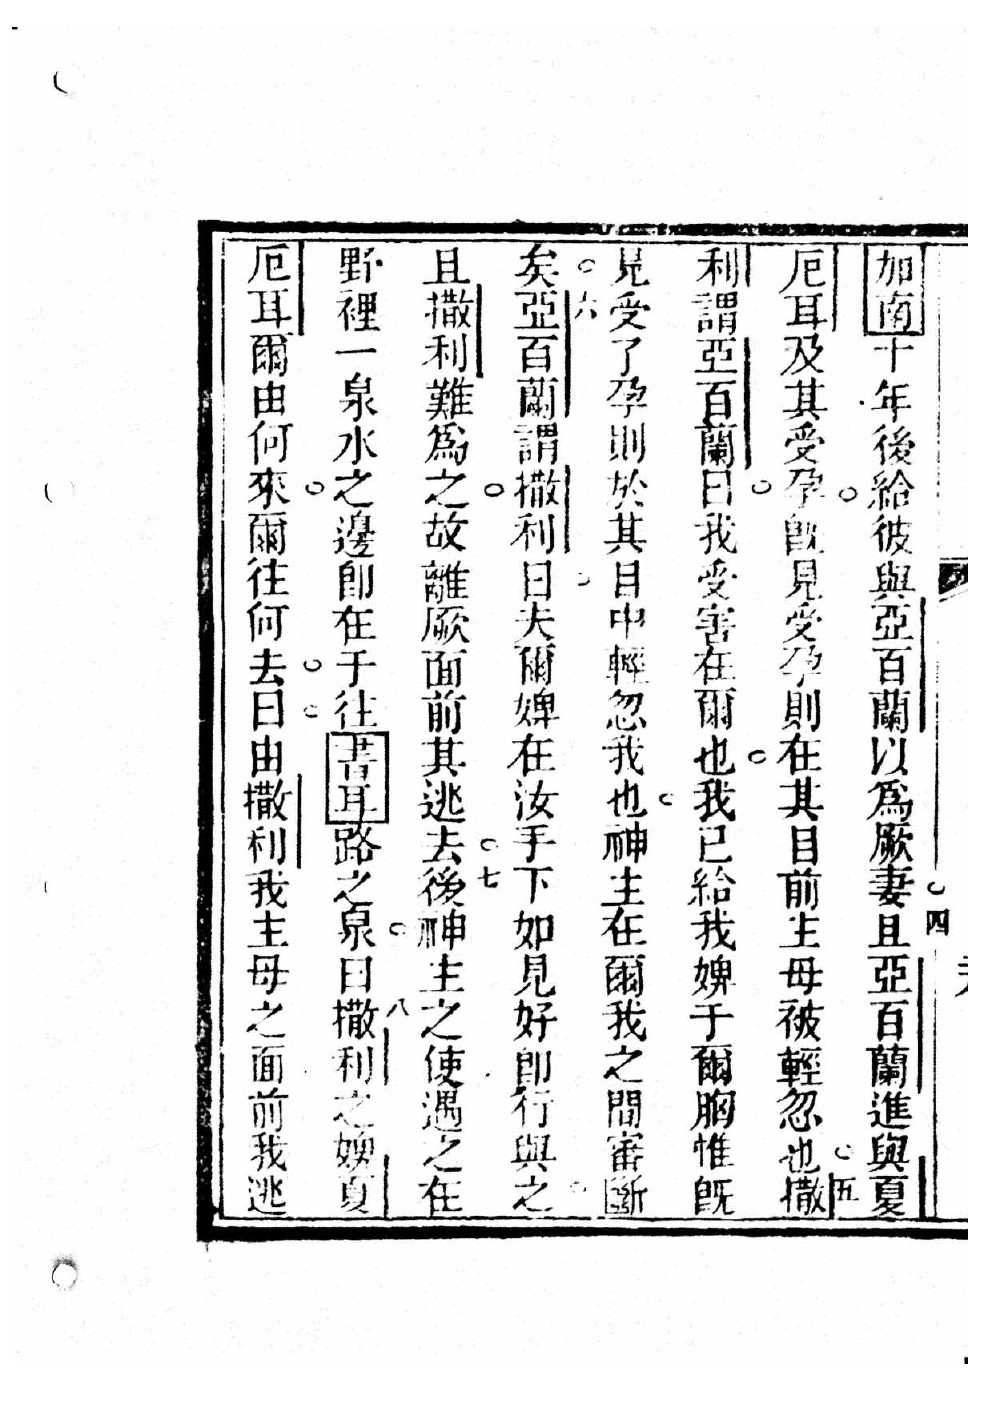 加南十年後給彼與亞百蘭以爲厥妻且亞百蘭進與夏
四
厄耳及其受孕旣見受孕則在其目前主母被輕忽也撒
五
利謂亞百蘭曰我受害在爾也我已給我婢于爾胸惟旣
見受了孕則於其目中輕忽我也神主在爾我之間審斷
六
矣亞百蘭謂撒利曰夫爾婢在汝手下如見好卽行與之
七
且撒利難爲之故離厥面前其逃去後神主之使遇之在
八
野裡一泉水之邊卽在于往書耳路之泉曰撒利之婢夏
厄耳爾由何來爾往何去曰由撒利我主母之面前我逃